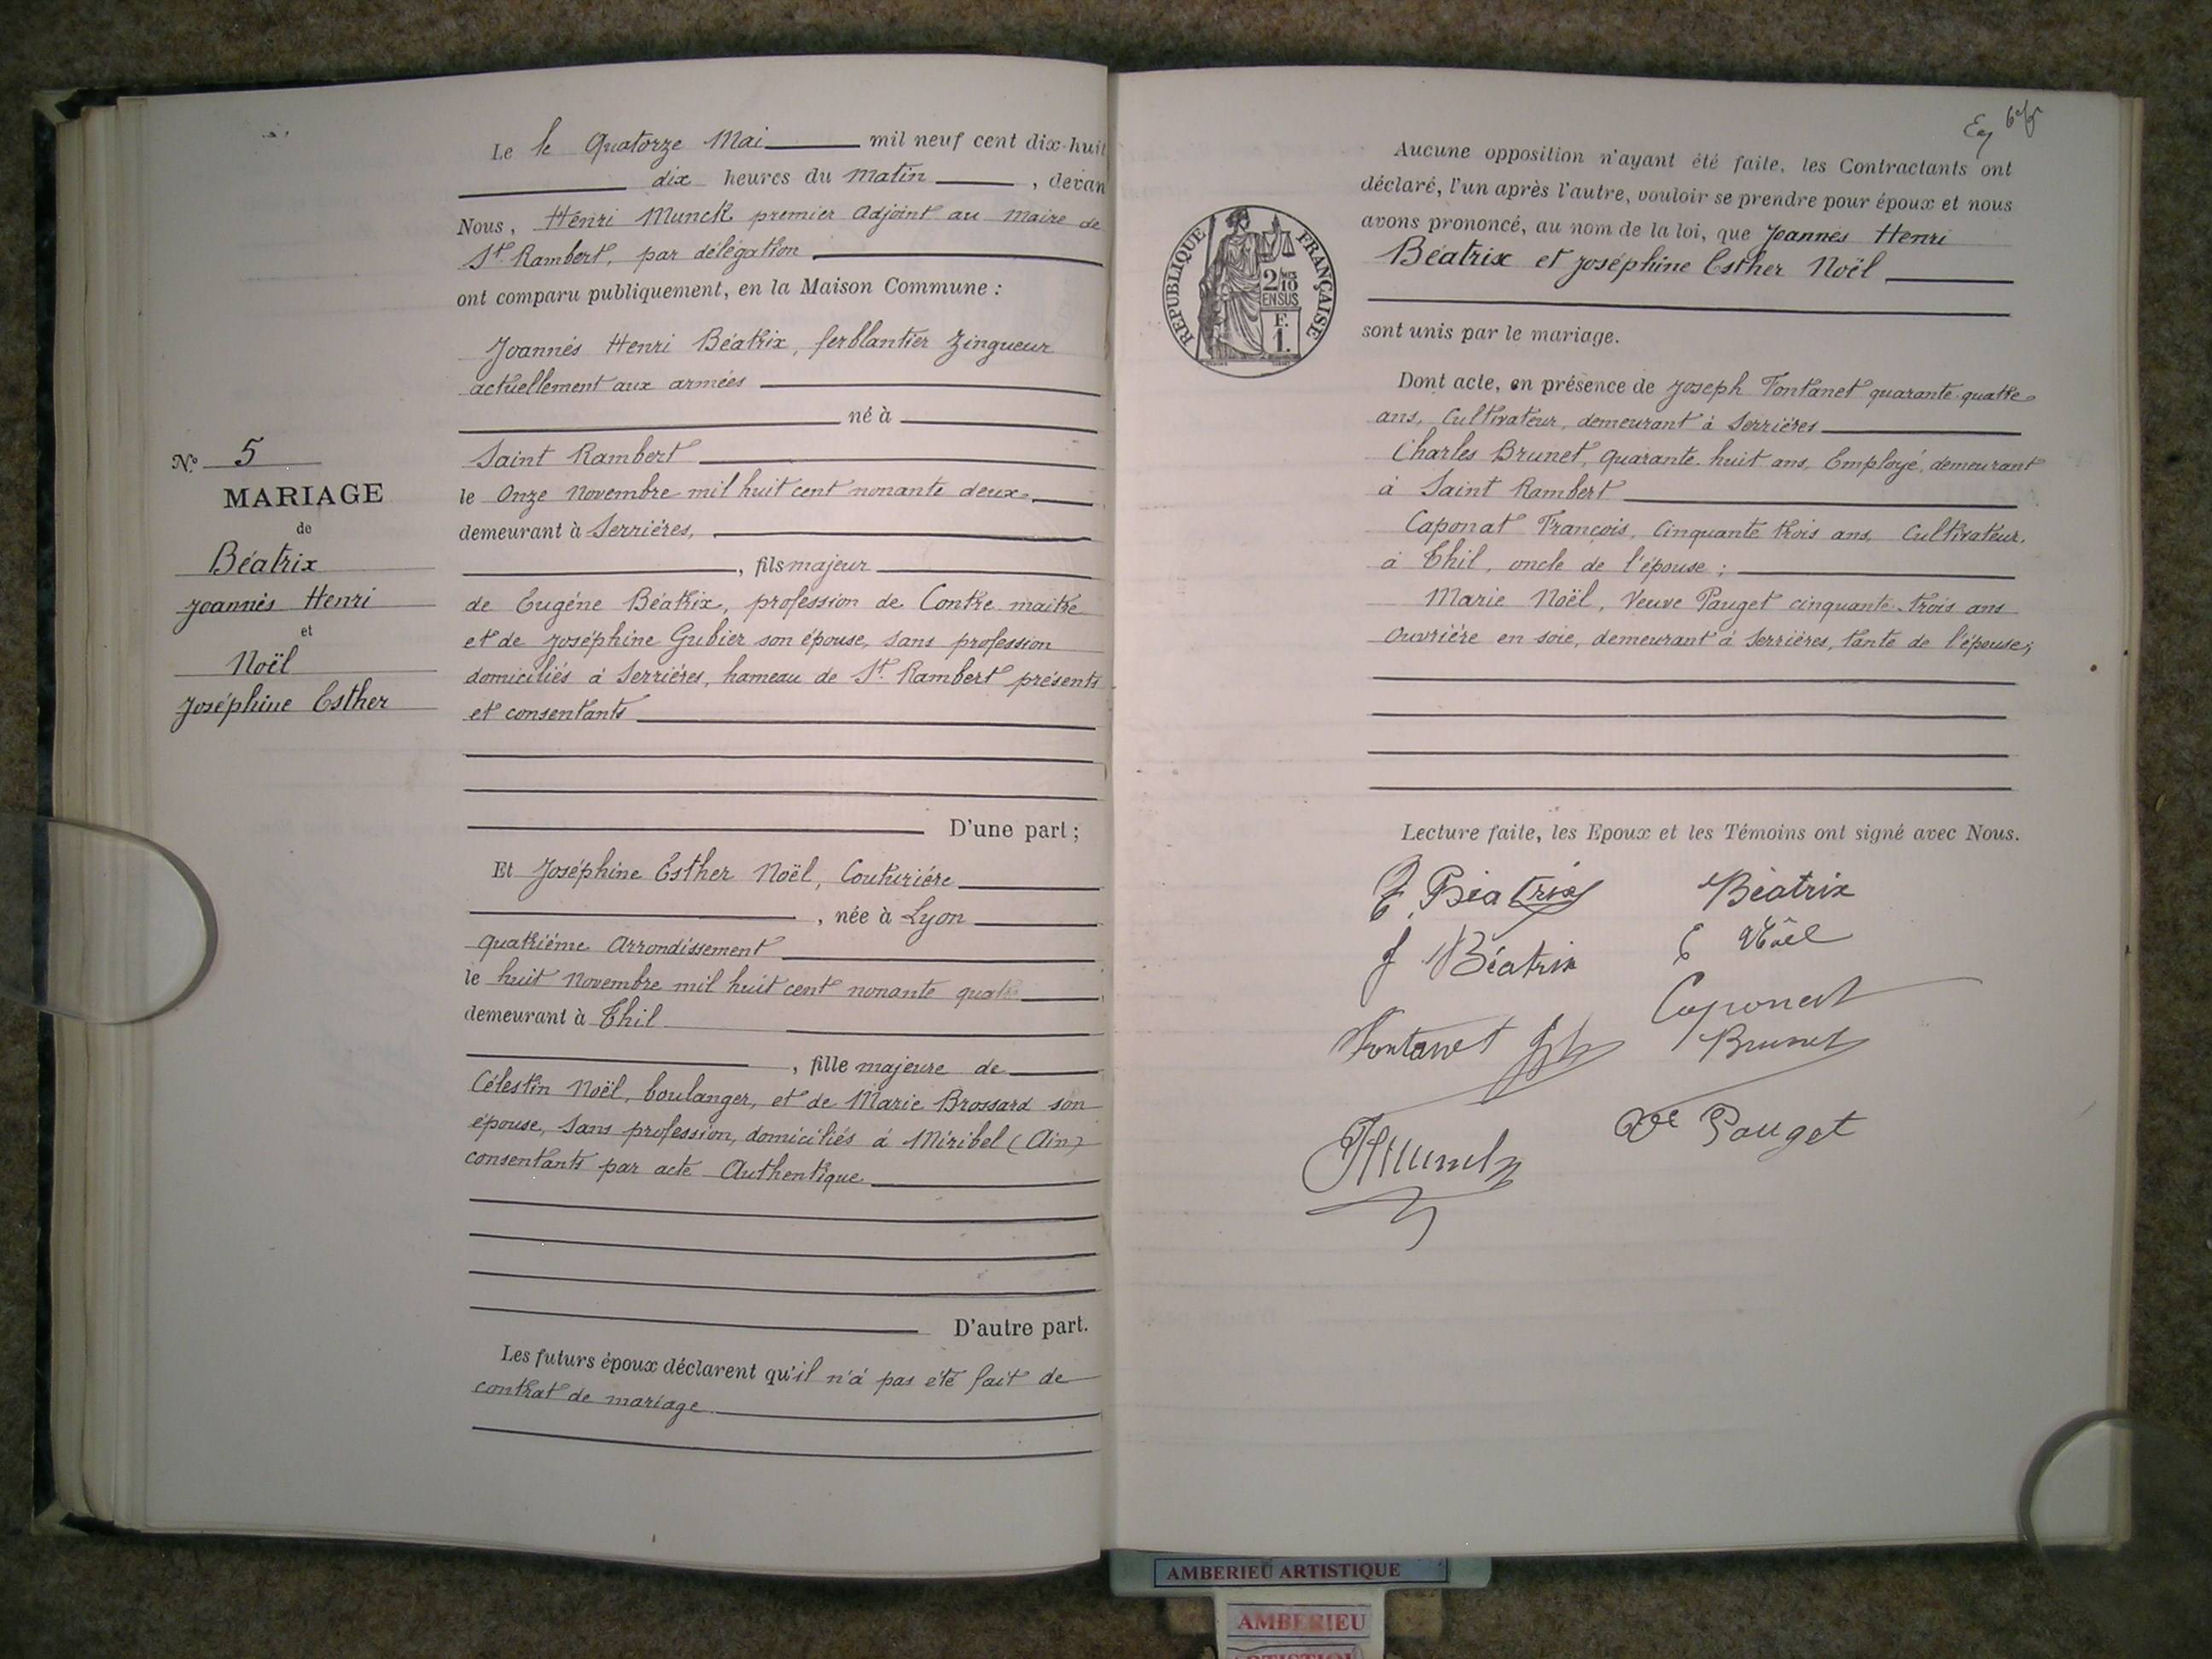 Le le Quatorze Mai mil neuf cent dix-huit
dix heures du Matin, devan
Nous, Henri Munck premier Adjoint au Maire de
St. Rambert, par délégation
ont comparu publiquement, en la Maison Commune :
Joannés Henri Béatrix, ferblantier Zingueur
actuellement aux armées
né à
Saint Rambert
le Onze Novembre mil huit cent nonante deux
demeurant à Serriéres,
, fils majeur
de Eugéne Béatrix, profession de Contre maitre
et de Joséphine Gubier son épouse, sans profession
domiciliés à Serriéres, hameau de St. Rambert présents
et consentants
D'une part ;
Nº 5
MARIAGE
de
Béatrix
Joannés Henri
et
Noël
Joséphine Esther
Et Joséphine Esther Noël, Couturiére
, née à Lyon
quatriéme Arrondissement
le huit Novembre mil huit cent nonante quatre
demeurant à Thil
, fille majeure de
Célestin Noël, boulanger, et de Marie Brossard son
épouse, sans profession, domiciliés à Miribel (Ain)
consentants par acte Authentique
D'autre part.
Les futurs époux déclarent qu'il n'á pas été fait de
contrat de mariage
6
Aucune opposition n'ayant été faite, les Contractants ont
déclaré, l'un après l'autre, vouloir se prendre pour époux et nous
avons prononcé, au nom de la loi, que Joannés Henri
Béatrix et Joséphine Esther Noël
sont unis par le mariage.
RÉPUBLIQUE FRANÇAISE
2/10 EN SUS
F.
1.
Dont acte, en présence de Joseph Fontanet quarante quatre
ans, Cultivateur, demeurant à Serriéres
Charles Brunet, quarante huit ans, Employé, demeurant
à Saint Rambert
Caponat François, Cinquante trois ans, Cultivateur,
à Thil, oncle de l'épouse ;
Marie Noël, Veuve Pauget cinquante trois ans
Ouvriére en soie, demeurant à Serriéres, tante de l'épouse ;
Lecture faite, les Epoux et les Témoins ont signé avec Nous.
E. Béatrix Béatrix
J Béatrix E Nöel
Caponat
Fontanet Brunet
Vve Pauget
HMunck
AMBERIEU ARTISTIQUE
AMBERIEU
ARTISTIQU